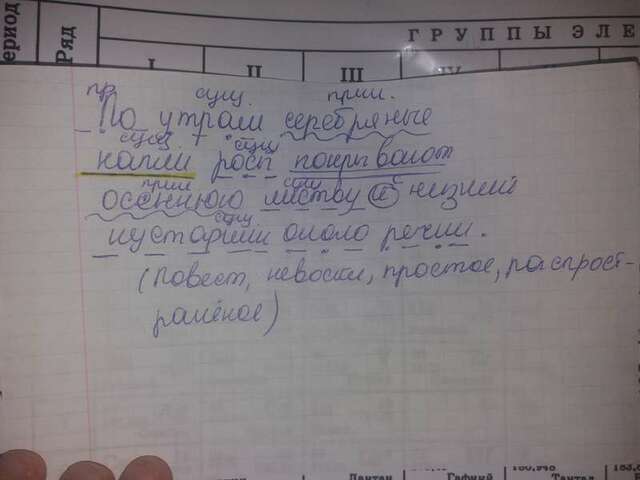 ериод
Ряд
ГРУППЫ ЭЛЕ
I II III IV
пр. сущ. прил.
По утрам серебряные
сущ. сущ.
капли росы покрывают
прил сущ с
осеннюю листву и низкий
сущ
кустарник около речки.
(Повест, невоскл, простое, распрост-
ранёное)
Лантан Гафний Тантал